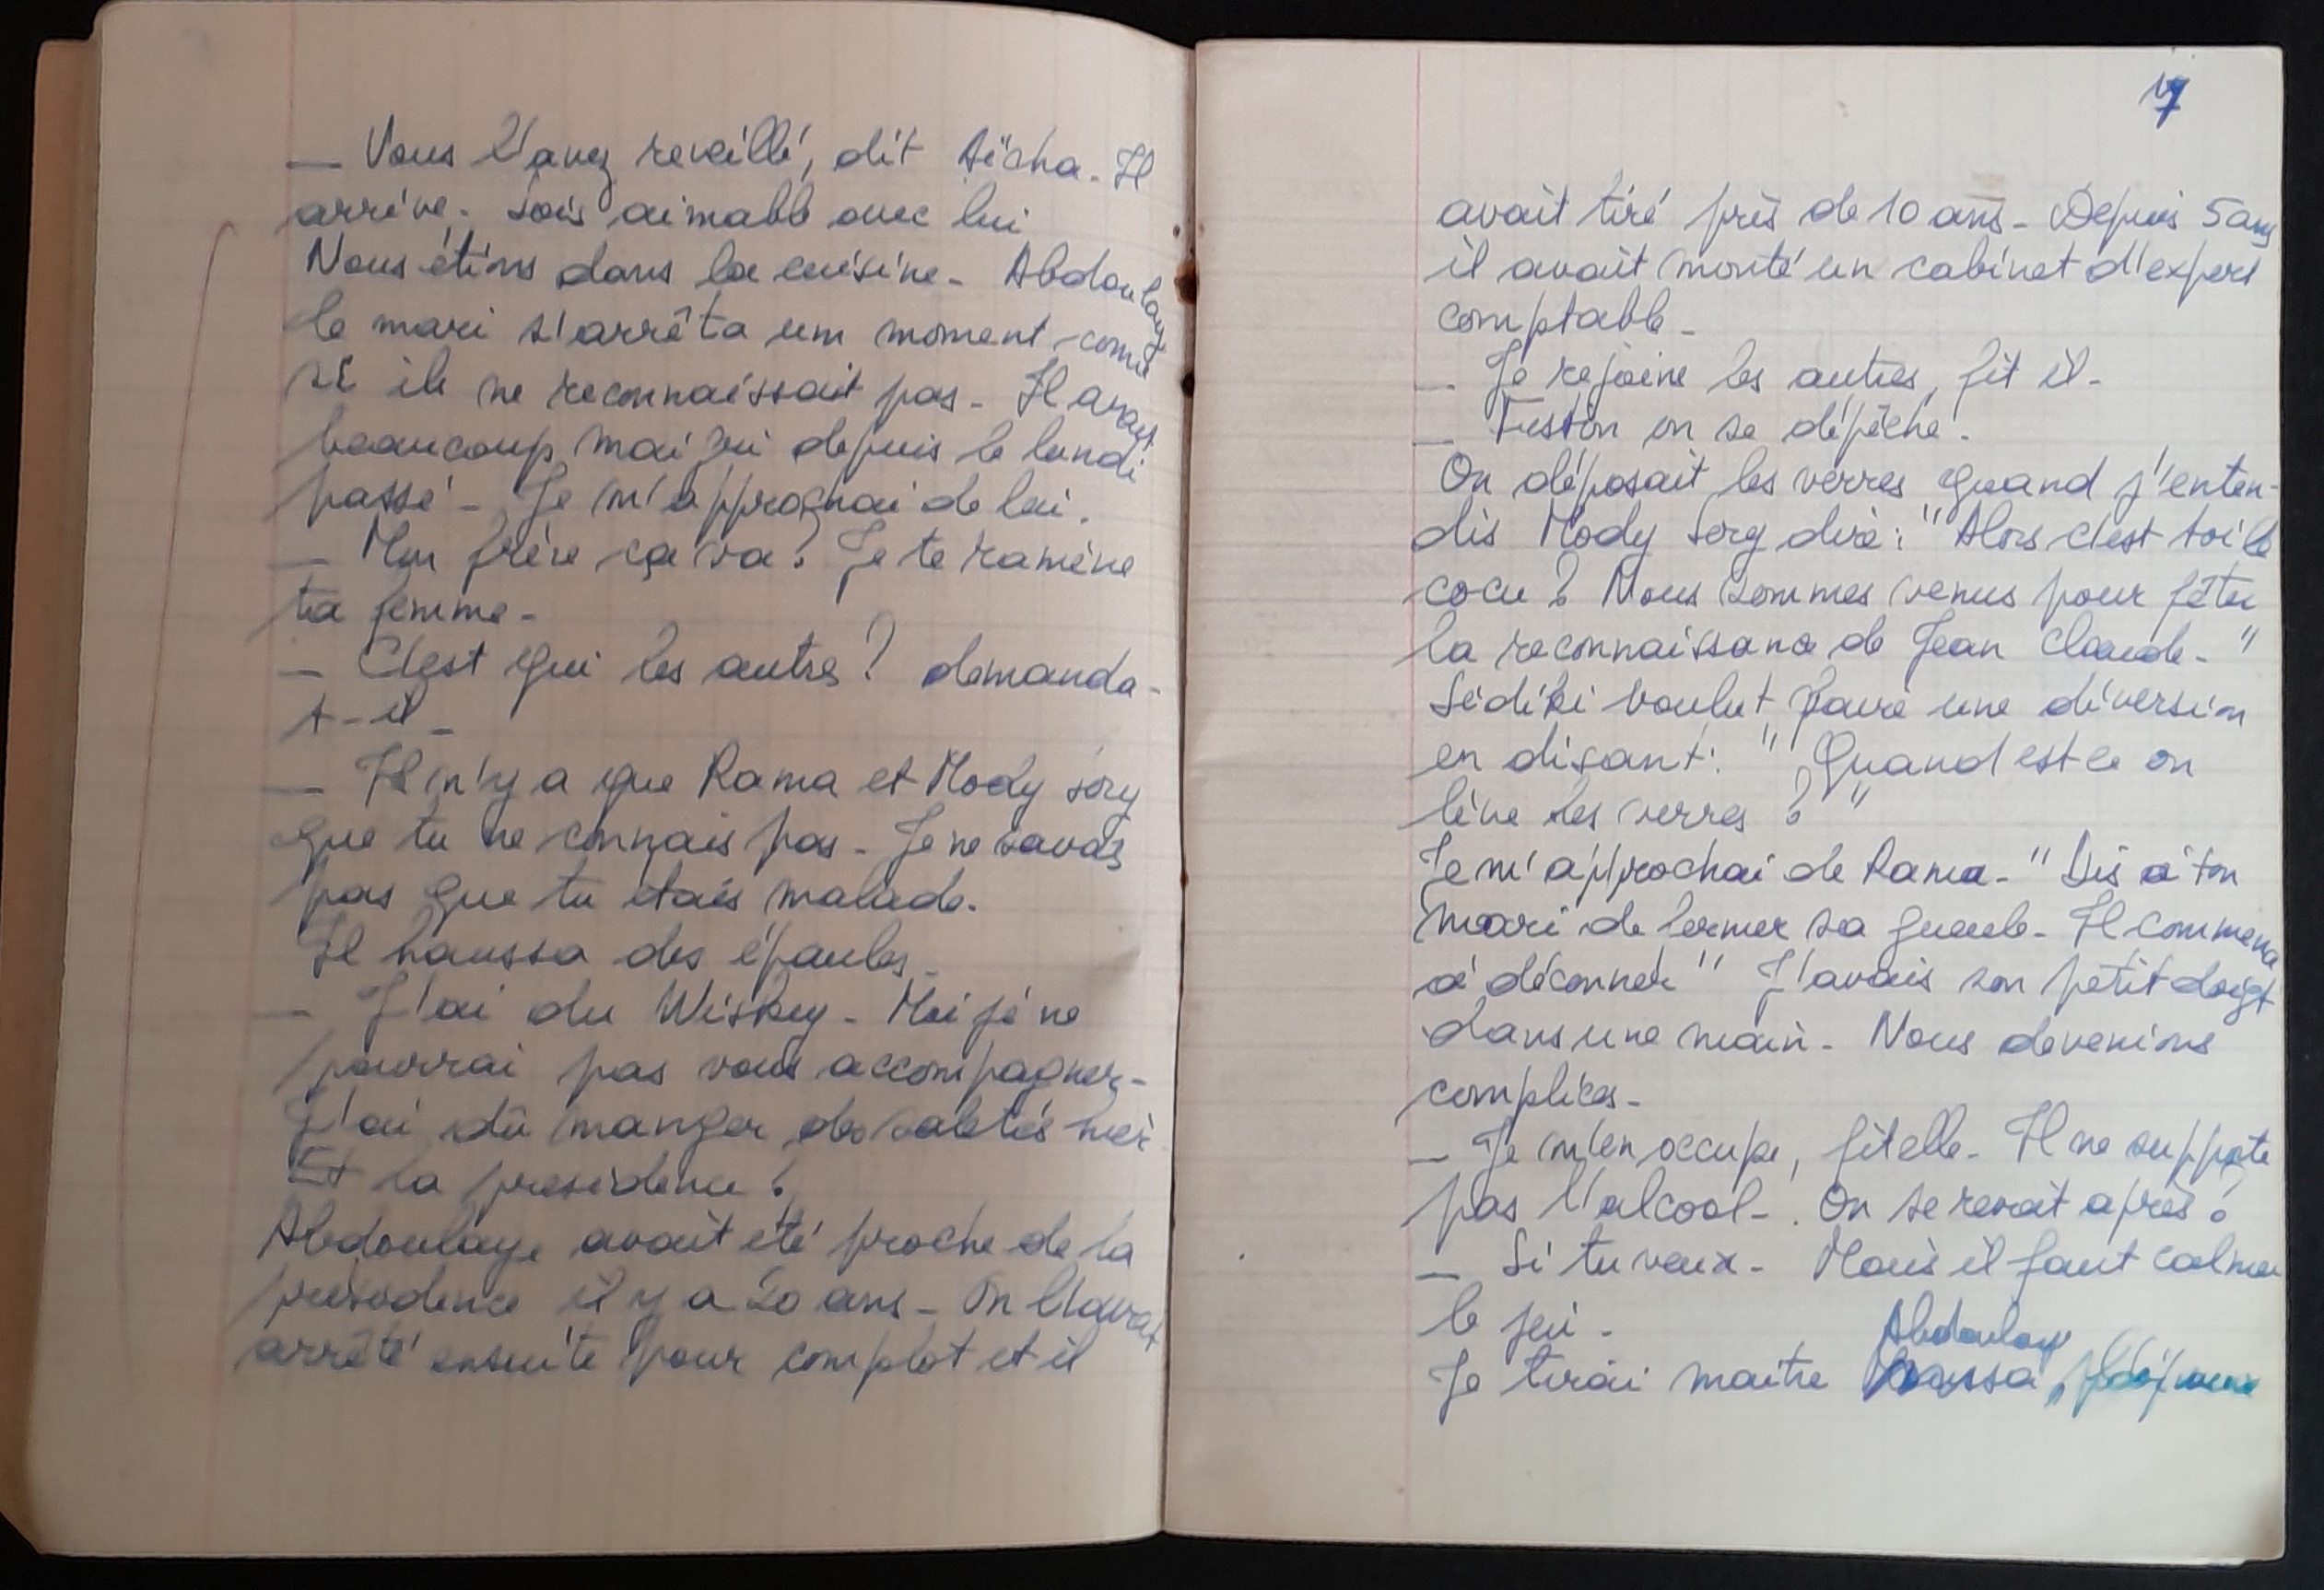 — Vous l'avez reveillé, dit Aïcha. Il
arrive. Sois aimable avec lui
Nous étions dans la cuisine. Abdoulaye
le mari s'arrêta um moment comme
si ile ne reconnaissait pas. Il avait
beaucoup maigri depuis le lundi
passé. Je m'approchai de lui.
— Mon frère ça va ? Je te ramène
ta femme.
— C'est qui les autres ? demanda-
t-il.
— Il n'y a que Rama et Mody Sory
que tu ne connais pas. Je ne savais
pas que tu étais malade.
Il haussa des épaules.
— J'ai du Wiskey. Moi je ne
pourrai pas vous accompagner.
J'ai dû manger des saletés hier.
Et la presidence ?
Abdoulaye avait été proche de la
présidence il y a 20 ans. On l'avait
arrêté ensuite pour complot et il
17
avait tiré près de 10 ans. Depuis 5 ans
il avait monté un cabinet d'expert
comptable.
— Je rejoine les autres, fit il.
— on se dépêche.
On déposait les verres quand j'enten-
dis Mody Sory dire : "Alors c'est toi le
cocu ? Nous sommes venus pour fêter
la reconnaissance de Jean Claude."
Sidiki voulut faire une diversion
en disant : "Quand est ce on
lève les verres ?"
Je m'approchai de Rama. "Dis à ton
mari de fermer sa gueule. Il commence
à déconner" J'avais son petit doigt
dans une main. Nous devenions
complices.
— Je m'en occupe, fit elle. Il ne supporte
pas l'alcool. On se revoit après ?
— Si tu veux. Mais il faut calmer
le jeu.
Abdoulaye
Je tirai maitre